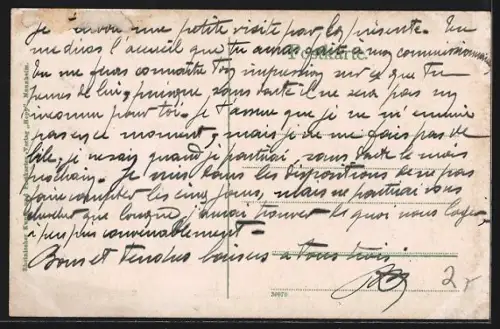 Je t'envoie une petite visite par la présente. Tu
me diras l'accueil que tu auras fait à mon commissionnaire
Tu me feras connaître ton impression sur ce que tu
penses de lui, puisque, sans doute il ne sera pas un
inconnu pour toi. Je t'assure que je ne m'ennuie
pas en ce moment, mais je ne me fais pas de
bile, je ne sais quand je partirai, sans doute le mois
prochain. Je suis dans les dispositions de ne pas
faire compter les cinq jours, mais ne partirai vous
chercher que lorsque j'aurai trouvé de quoi nous loger
à peu près convenablement.
Bons et tendres baisers à tous trois
Postkarte
Rheinischer Kunst- und Verlag Mannheim.
30979
2